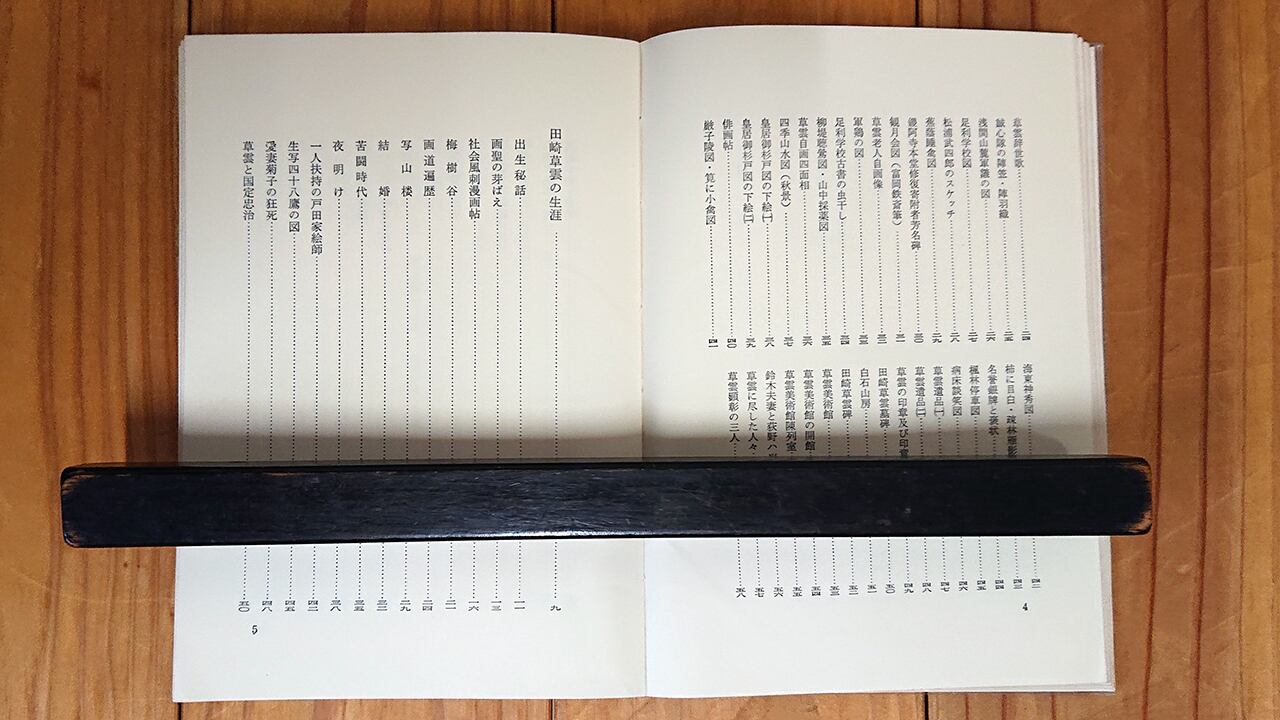 草雲辞世歌……二四
誠心隊の陣笠・陣羽織……二五
浅間山麓軍議の図……二六
足利学校図……二七
松浦武四郎のスケッチ……二八
蕉蔭睡禽図……二九
鑁阿寺本堂修復寄附者芳名碑……三〇
観月会図(富岡鉄斎筆)……三一
草雲老人自画像……三二
軍鶏の図……三三
足利学校古書の虫干し……三四
柳堤聴鶯図・山中採薬図……三五
草雲自画四面相……三六
四季山水図(秋景)……三七
皇居御杉戸図の下絵(一)……三八
皇居御杉戸図の下絵(二)……三九
俳画帖……四〇
厳子陵図・筧に小禽図……四一
海東神秀図……四二
柿に目白・疎林
名誉銀牌と褒状……四四
楓林停車図……四五
病床談笑図……四六
草雲遺品(一)……四七
草雲遺品(二)……四八
草雲の印章及び印
田崎草雲墓碑……五〇
白石山房……五一
田崎草雲碑……五二
草雲美術館……五三
草雲美術館の開館……五四
草雲美術館陳列室……五五
鈴木夫妻と荻野
草雲に尽した人々……五七
草雲顕彰の三人……五八
4
田崎草雲の生涯……九
出生秘話……一一
画聖の芽ばえ……一三
社会風刺漫画帖……一六
梅樹谷……二一
画道遍歴……二四
写山楼……二九
結婚……三二
苦闘時代……三五
夜明け……三八
一人扶持の戸田家絵師……四二
生写四十八鷹の図……四五
愛妻菊子の狂死……四八
草雲と国定忠治……五〇
5